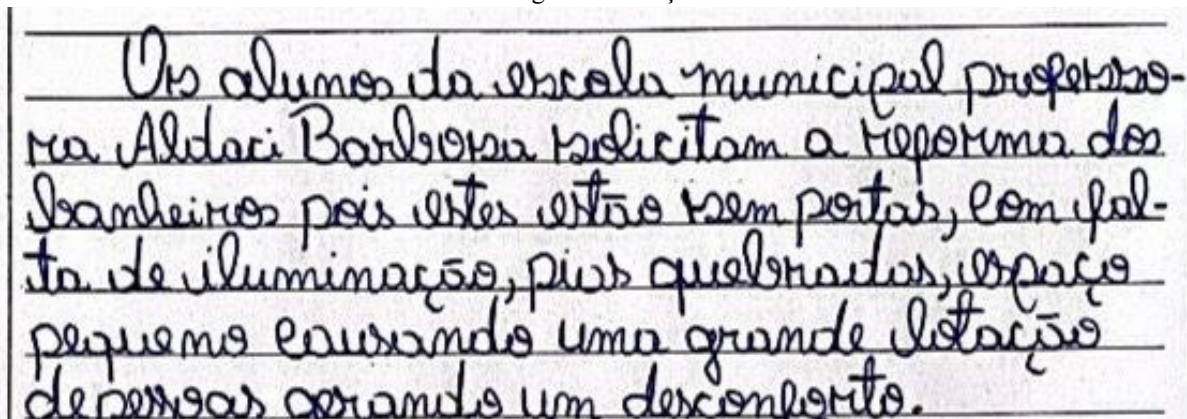 Os alunos da escola municipal professo-
ra Aldaci Barbosa solicitam a reforma dos
banheiros pois estes estão sem portas, com fal-
ta de iluminação, pias quebradas, espaço
pequeno causando uma grande lotação
de pessoas gerando um desconforto.